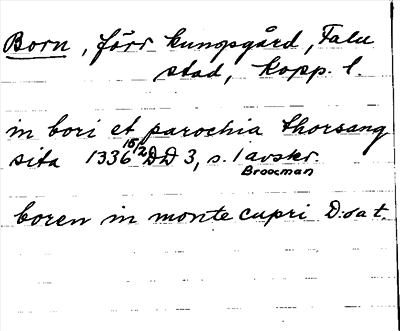 Born, förr kungsgård, Falu
stad, Kopp. l.
in bori et parochia Thorsang
sita 1336 15/2 DD 3, s. 1 avskr.
Broocman
boren in monte cupri D:o a t.